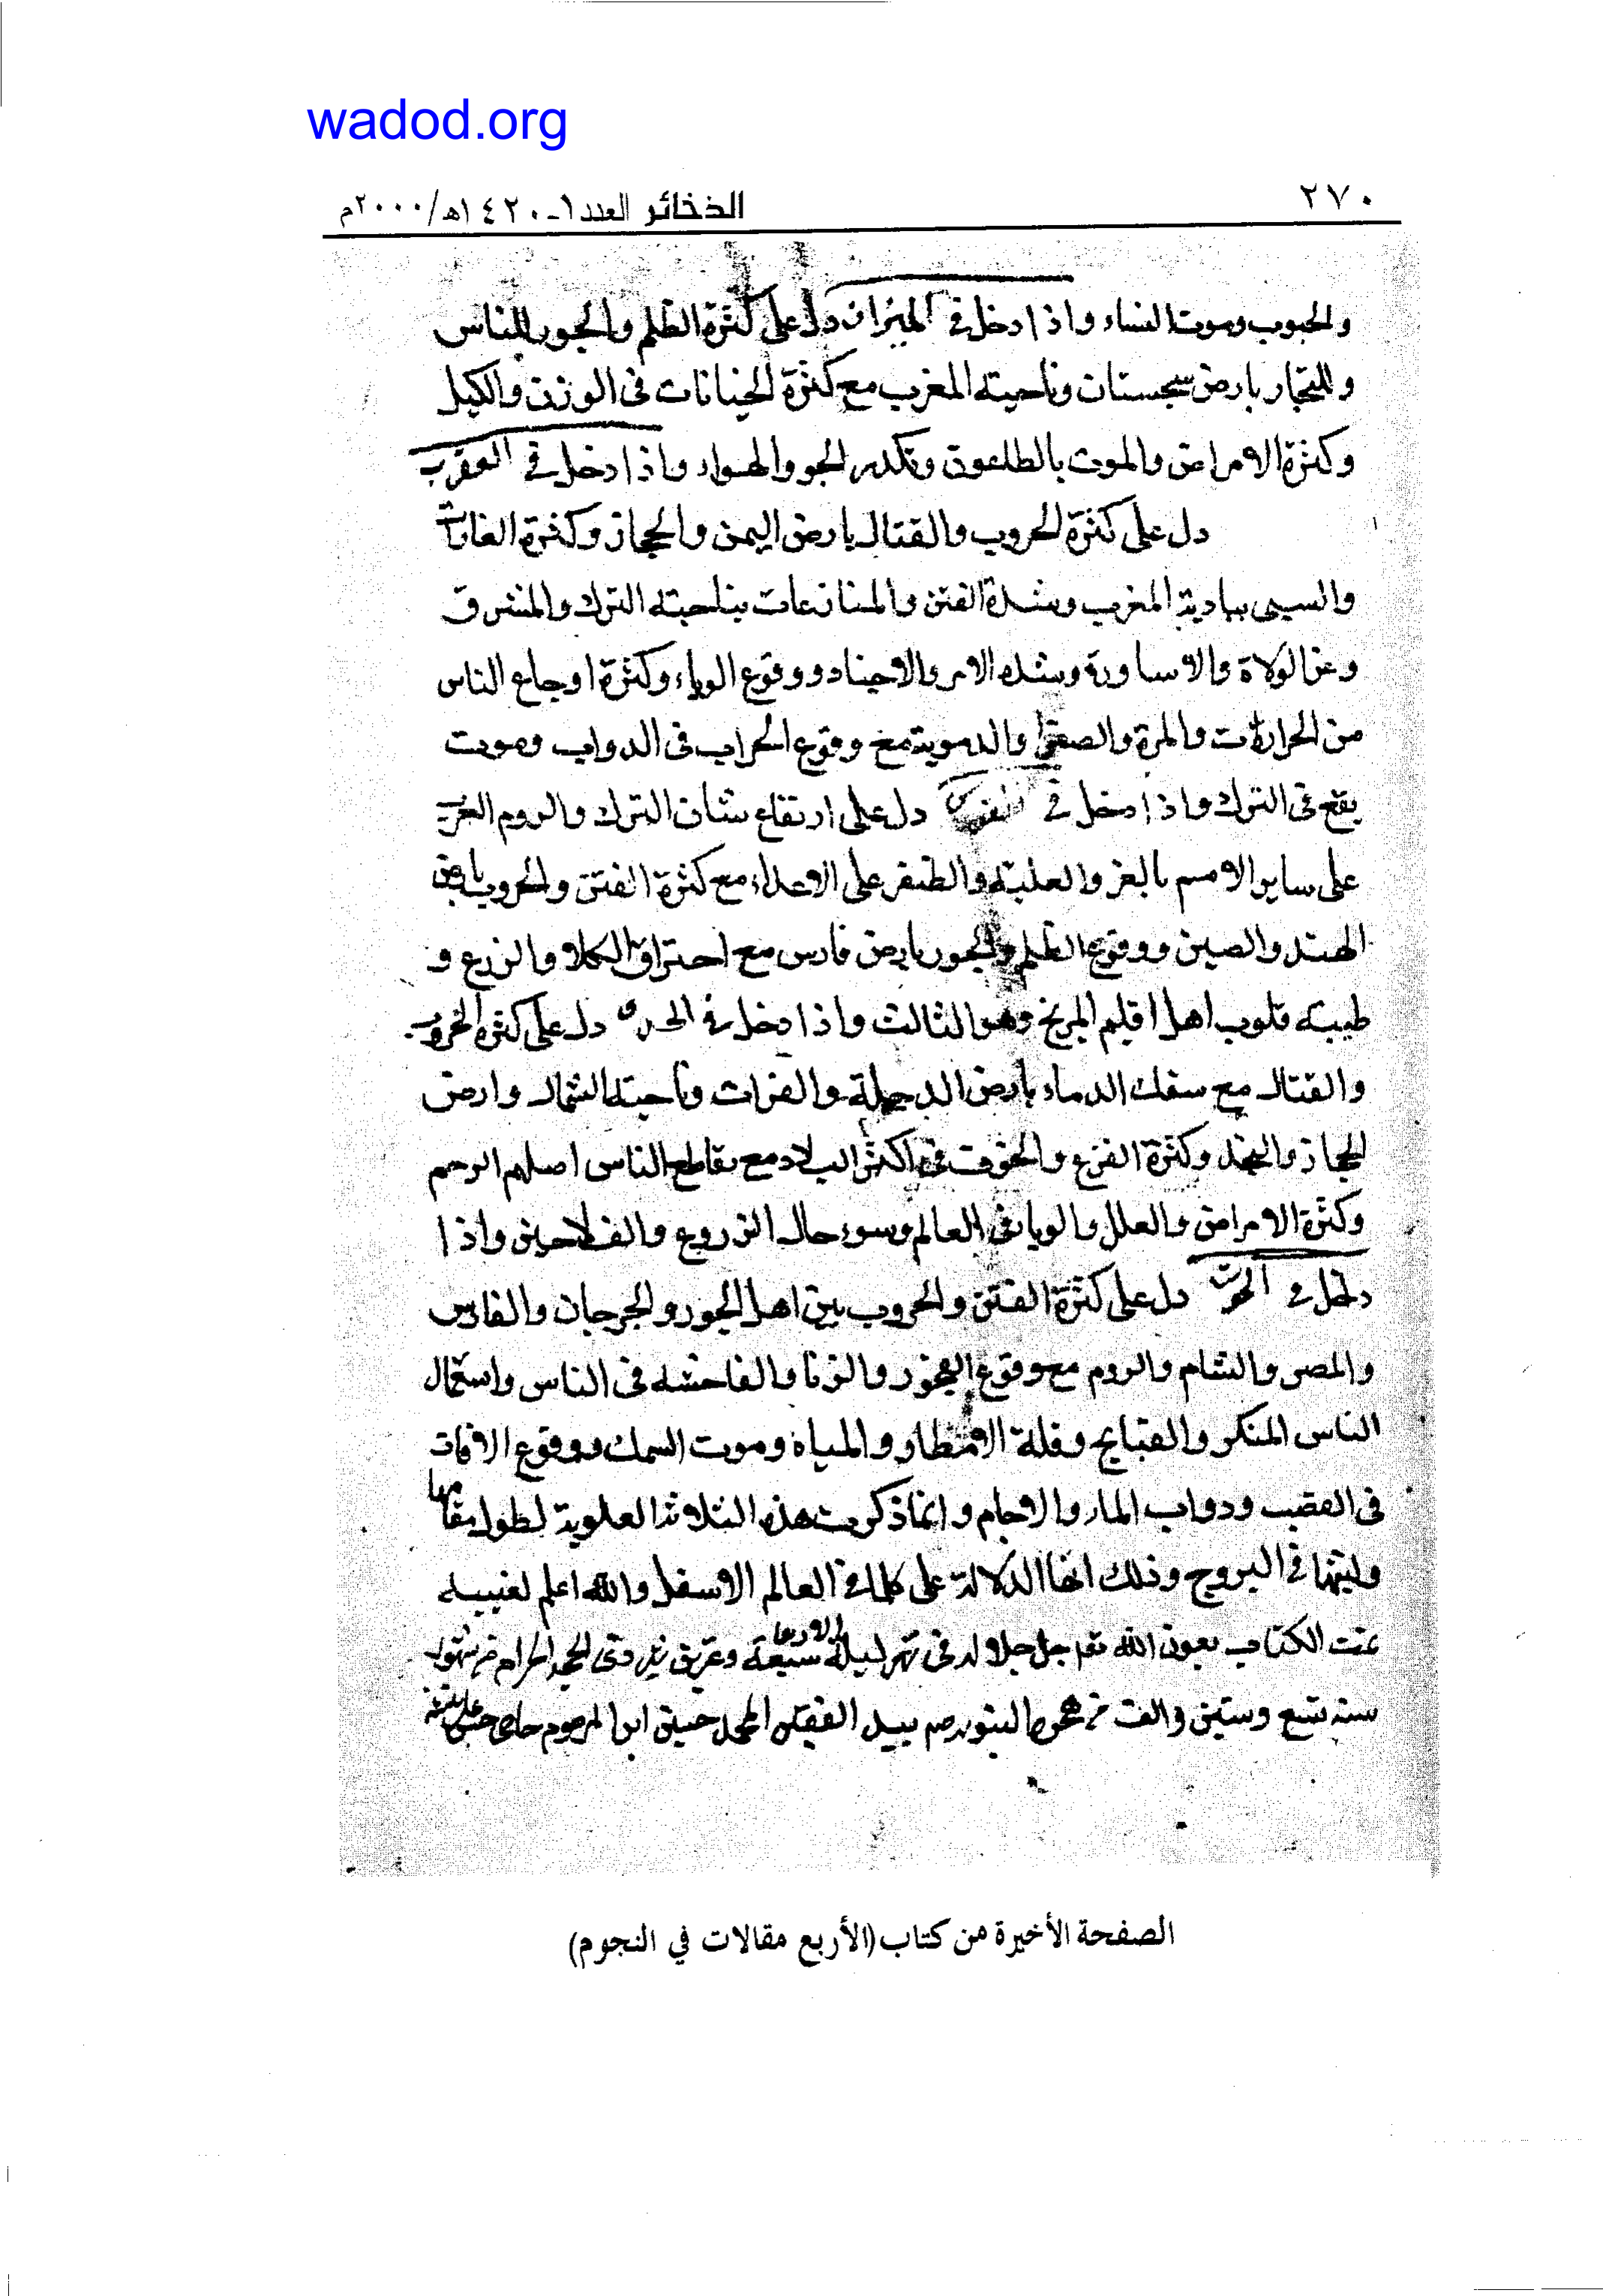 wadod.org
٢٧٠
الذخائر العدد ١-١٤٢٠هـ/٢٠٠٠م
والحبوب وموت النساء واذا دخل في الميزان دل على كثرة الظلم والجور للناس
وللتجار بارض سجستان وناحيته المغرب مع كثرة الخيانات في الوزن والكيل
وكثرة الامراض والموت بالطاعون وتكدر الجو والهواء واذا دخل في العقرب
دل على كثرة الحروب والقتال بارض اليمن والحجاز وكثرة الغارات
والسبي ببادية المغرب وشدة الفتن والمنازعات بناحيته الترك والمشرق
وعن الولاة والاساورة وشده الامر والاجناد ووقوع الوباء وكثرة اوجاع الناس
من الحرارات والمرة والصفرا والدموية مع وقوع الجراب في الدواب وموت
يقع في الترك واذا دخل في دل على ارتفاع شان الترك والروم
على ساير الامم بالعز والغلبة والظفر على الاعداء مع كثرة الفتن والحروب بارض
الهند والصين ووقوع الظلم والجور بارض فارس مع احتراق الكلاء والزرع و
طيبة قلوب اهل اقليم المريخ وهو الثالث واذا دخل في الجدى دل على كثرة الحروب
والقتال مع سفك الدماء بارض الدجلة والفرات وناحيته الشمال وارض
الحجاز والهند وكثرة الفزع والخوف في اكثر البلاد مع تقاطع الناس اصلهم الرحم
وكثرة الامراض والعلل والوبا في العالم وسوء حال الزروع والفلاحين واذا
دخل في الحوت دل على كثرة الفتن والحروب بين اهل الجور والجرجان والفارس
والمصر والشام والروم مع وقوع الفجور والزنا والفاحشه في الناس واستعمال
الناس المنكر والقبايح وقلة الامطار والمياه وموت السمك ووقوع الافات
في القصب ودواب الماء والاجام وانما ذكرت هذه الثلاثة العلوية لطول مقامها
ولبثها في البروج وذلك انها الدلالة على كلما في العالم الاسفل والله اعلم لغيبه
تمت الكتاب بعون الله تعا جل جلاله في ليلة الاربعا سبعة وعشرين ذى الحجة الحرام من شهور
سنه تسع وستين والف من بيد الفقير محمد حسين ابن المرحوم حاجى
الصفحة الأخيرة من كتاب (الأربع مقالات في النجوم)